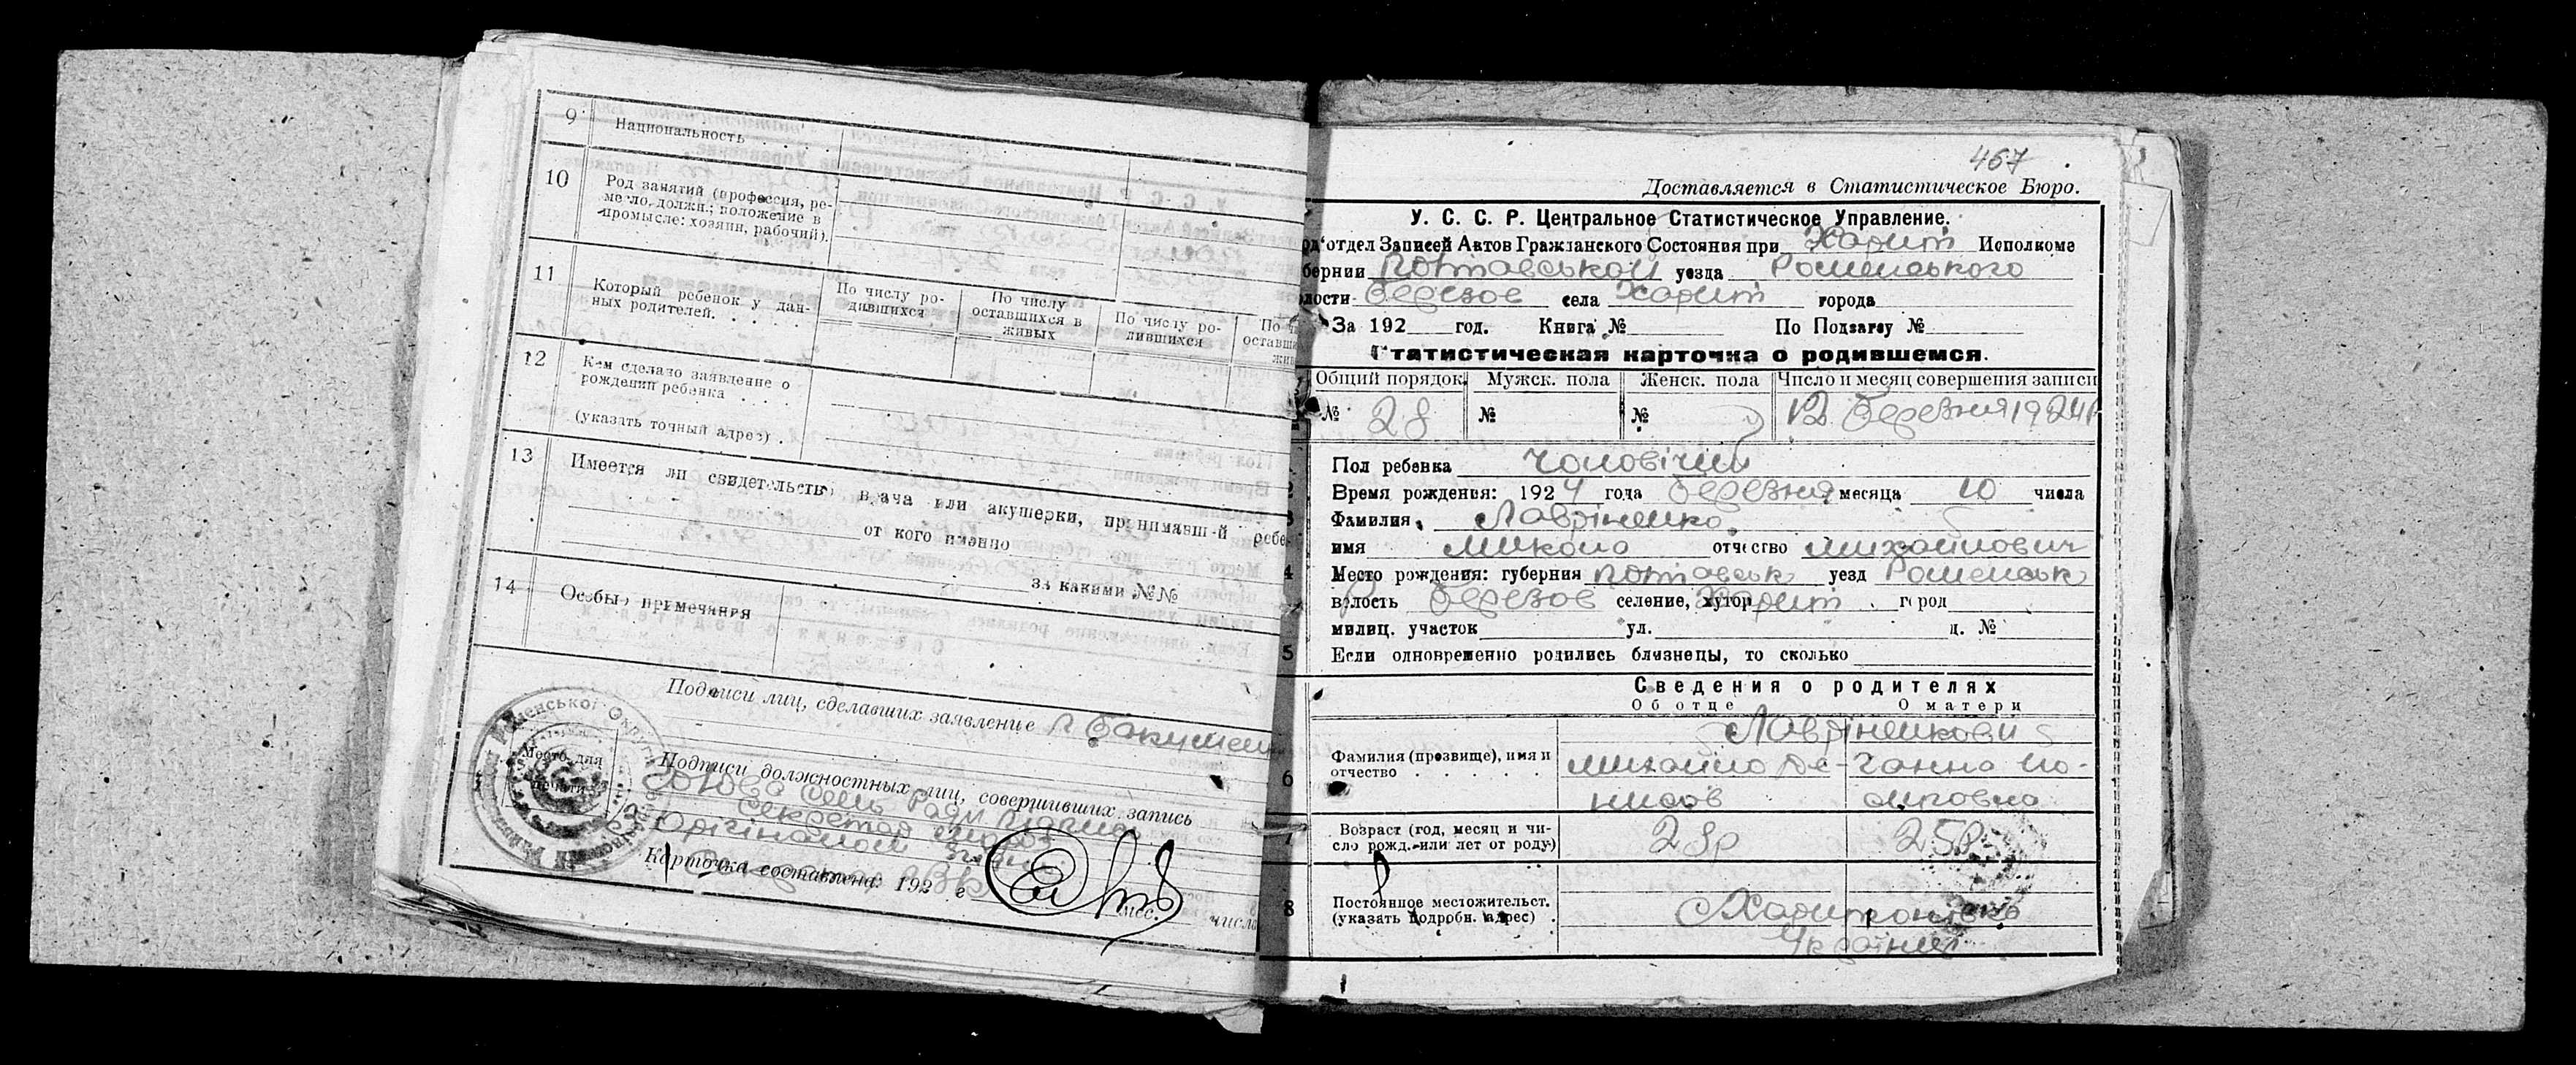 9 Национальность . . . .
10 Род занятий (профессия, ре-
месло, должн.; положение в
промысле: хозяин, рабочий).
11 Который ребенок у дан-
ных родителей. . . . .
По числу ро-
дившихся
По числу
оставшихся в
живых
По числу ро-
дившихся
12 Кем сделано заявление о
рождении ребенка . . . .
(указать точный адрес) .
13 Имеется ли свидетельство врача или акушерки, принимавшей
от кого именно
за какими №№
14 Особые примечания
Подписи лиц, сделавших заявление
Место для
печати
Подписи должностных лиц, совершивших запись
Секретар
Карточка составлена: 192 г. мес. числа
467
Доставляется в Статистическое Бюро.
У. С. С. Р. Центральное Статистическое Управление.
отдел Записей Актов Гражданского Состояния при Харит Исполкоме
Полтавськой уезда Роменського
Березов села Харит города
За 192 год. Книга № По Подзагсу №
Статистическая карточка о родившемся.
Общий порядок. Мужск. пола Женск. пола Число и месяц совершения записи
№ 28 № № 12 березня 1924
Пол ребенка чоловічий
Время рождения: 1924 года березня месяца 10 числа
3 Фамилия, Лавріненко
имя Микола отчество Михайлович
4 Место рождения: губерния Полтавськ уезд Роменськ
волость Березов селение, хутор Харит город
милиц. участок ул. д. №
5 Если одновременно родились близнецы, то сколько
Сведения о родителях
Об отце О матери
Лаврiненкови
6 Фамилия (прозвище), имя и
отчество . . . . . .
Михайло Де-
нисов
Ганна
7 Возраст (год, месяц и чи-
сло рожд. или лет от роду)
28р 25р
8 Постоянное местожительст.
(указать подробн. адрес) .
Харитонівка
Українці